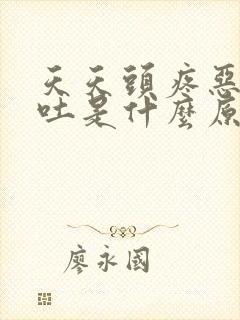 天天頭疼惡
吐是什麼原
廖永國